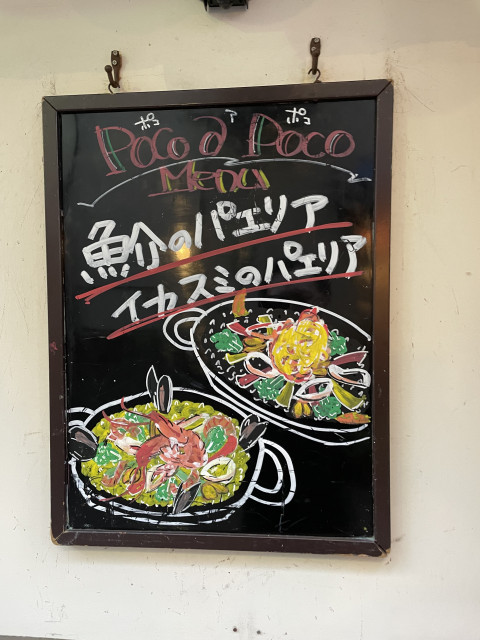 ポコ ア ポコ
Poco a Poco
Menu
魚介のパエリア
イカスミのパエリア